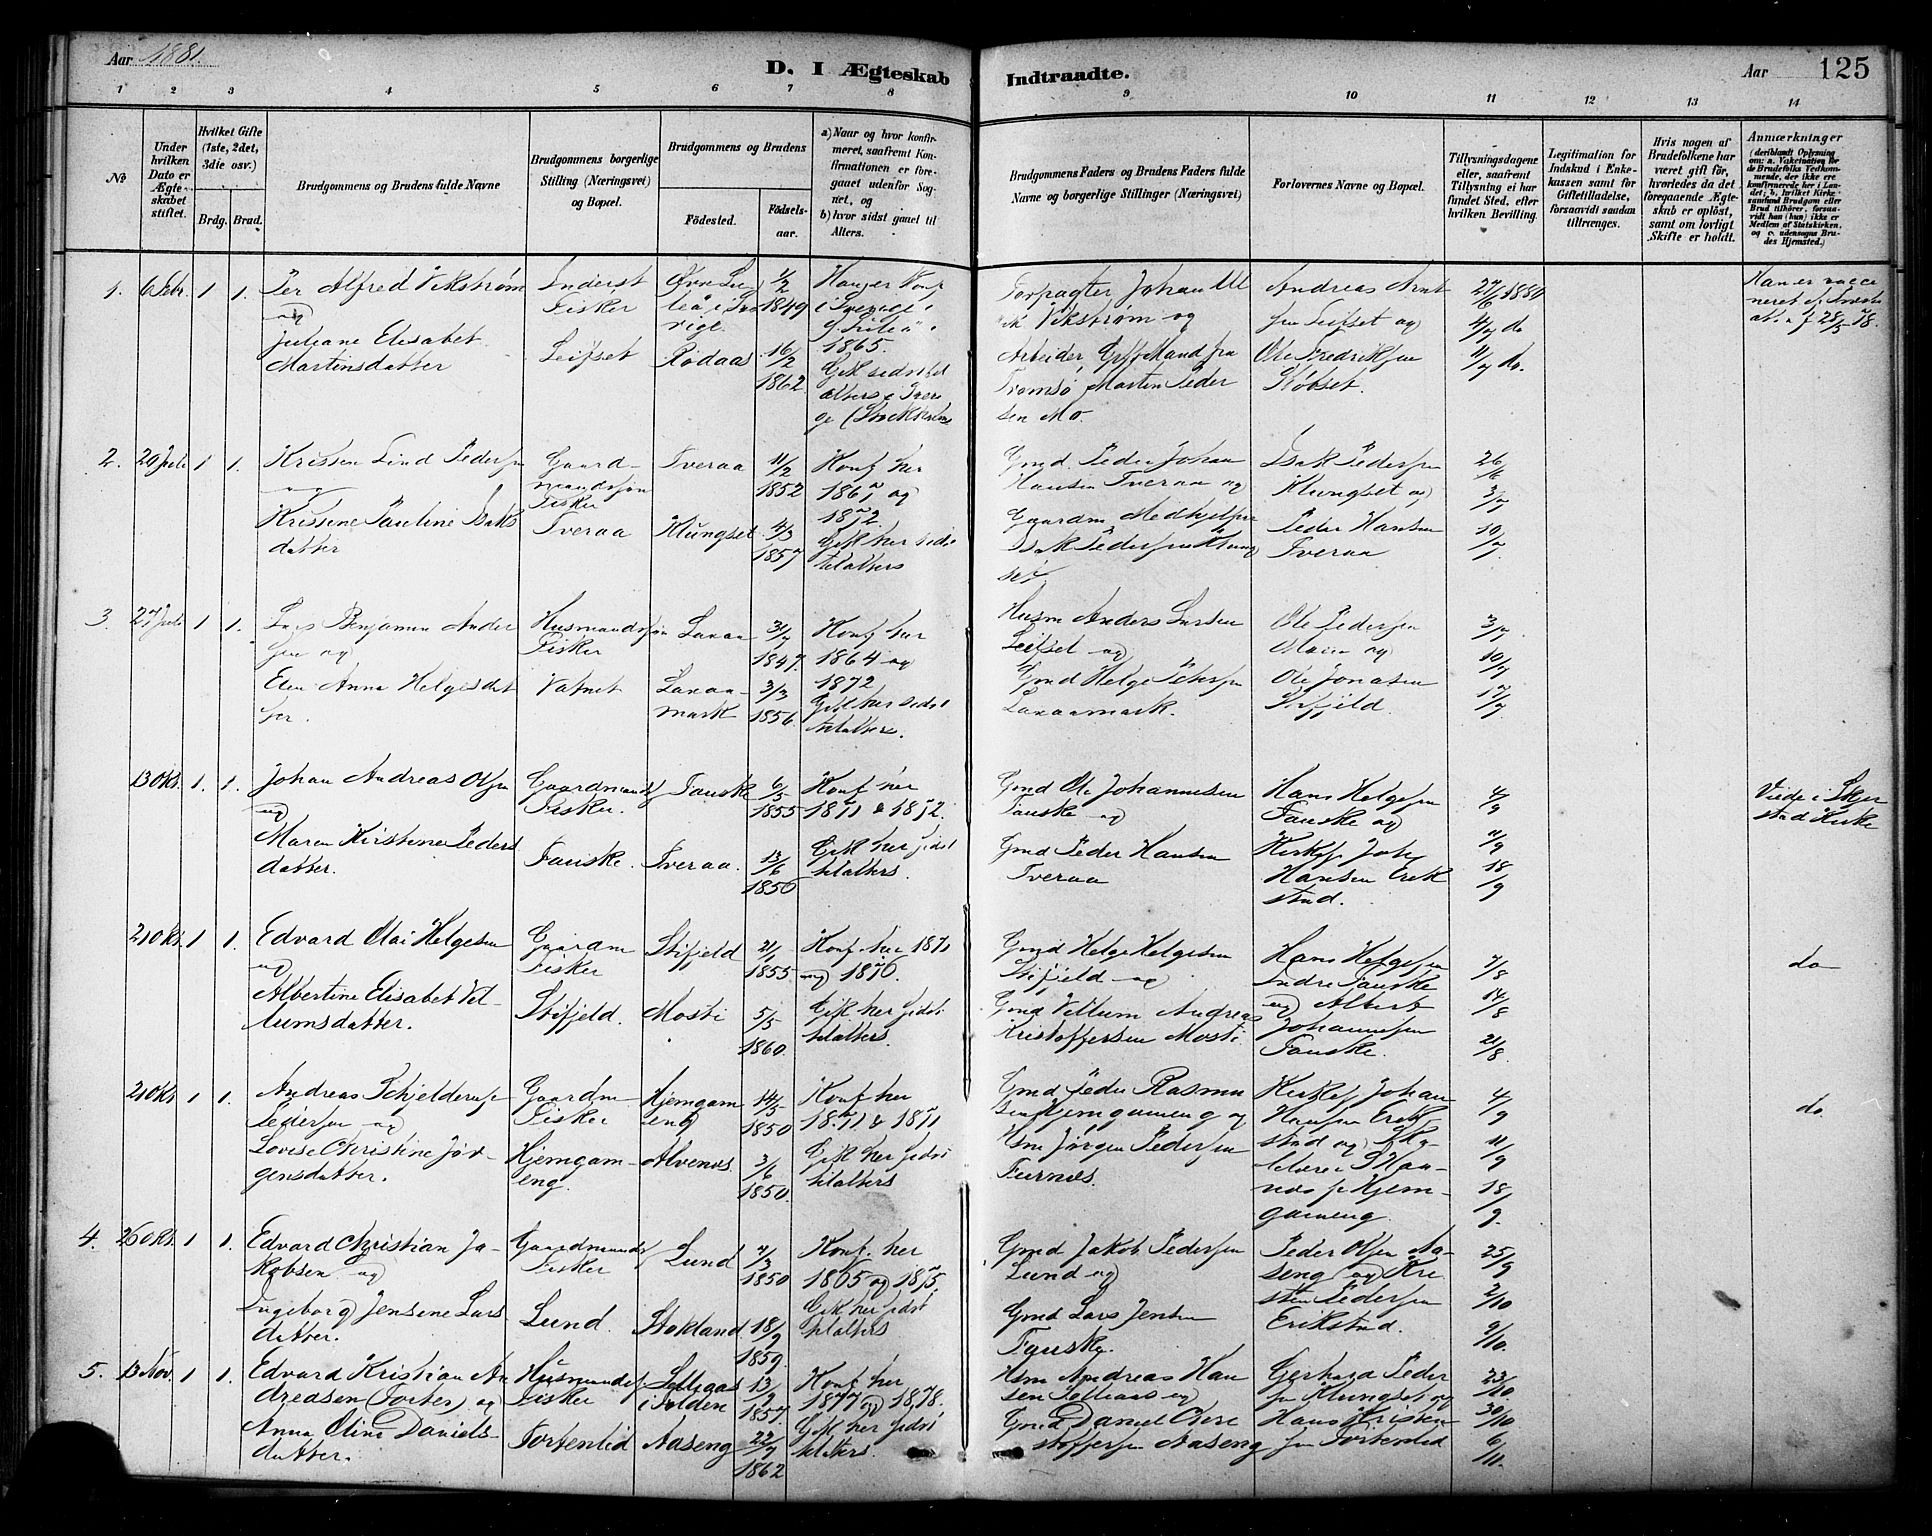 Aar 1881.
D. I Ægteskab Indtraadte.
Aar 125
1 2 3 4 5 6 7 8 9 10 11 12 13 14
No
Under hvilken Dato er Ægteskabet stiftet.
Hvilket Gifte (1ste, 2det, 3die osv.)
Brdg. Brud.
Brudgommens og Brudens fulde Navne
Brudgommens borgerlige Stilling (Næringsvei) og Bopæl.
Brudgommens og Brudens
Fødested.
Fødselsaar.
a) Naar og hvor konfirmeret, saafremt Konfirmationen er foregaaet udenfor Sognet, og
b) hvor sidst gaaet til Alters.
Brudgommens Faders og Brudens Faders fulde Navne og borgerlige Stillinger (Næringsvei)
Forlovernes Navne og Bopæl.
Tillysningsdagene eller, saafremt Tillysning ei har fundet Sted, efter hvilken Bevilling.
Legitimation for Indskud i Enkekassen samt for Giftetilladelse, forsaavidt saadan tiltrænges.
Hvis nogen af Brudefolkene har været gift før, hvorledes da det foregaaende Ægteskab er opløst, samt om lovligt Skifte er holdt.
Anmærkninger
(deriblandt Oplysning om: a. Vakcination for de Brudefolks Vedkommende, der ikke ere konfirmerede her i Landet; b. hvilket Kirkesamfund Brudgom eller Brud tilhører, forsaavidt han (hun) ikke er Medlem af Statskirken, og c. udensogns Brudes Hjemsted.)
1. 6 Febr. 1 1. Per Alfred Vikstrøm
og
Juliane Elisabet
Martinsdatter
Inderst
Fisker
Leifset
Rødaas
1/2
1849
16/2
1862
1865.
Vikstrøm og
Tromsø Morten Peder
sen Mo.
Andreas Arnt
fra Leifset og
Ole Fredriksen
27/6 1880
4/7 do
11/7 do.
28/5 78.
2. 20 Juli 1 1. Krissen Lind Peders
og
Krissene Pauline Isaks
datter
Gaard
mandssøn
Fisker
Tveraa
Tveraa
Klungset
11/2
1852
4/3
1857
Konf her
1867 og
1872.
Gik her sidst
til Alters
Gmd. Peder Johan
Hansen Tveraa og
Isak Pedersen Klung
set.
Isak Pedersen
Klungset og
Peder Hansen
Tveraa
26/6
3/7
10/7
3. 27 Juli 1 1. Lars Benjamin Ander
sen og
Elen Anna Helgesdat
ter.
Husmandssøn
Fisker
Vatnet
Laxaa
Laxaa
mark
31/7
1847.
3/3
1856.
Konf her
1864 og
1872
Gik her sidst
til Alters.
Husm Anders Larsen
Leifset og
Gmd Helge Peders
Laxaamark.
Ole Pedersen
og
Ole Jonasen
Stifjeld.
3/7
10/7
17/7
13 Okt. 1. 1. Johan Andreas Olsen
og
Maren Kirstine Peders
datter.
Gaardmands
Fisker.
Fauske.
Fauske
Tveraa.
6/5
1855
13/6
1850
Konf her
1871 & 1872.
Gik her sidst
til Alters.
Gmd Ole Johannesen
Fauske og
Gmd Peder Hansen
Tveraa
Hans Helgesen
Fauske og
Kirkes Joh
Hansen Erik
stad.
4/9
11/9
18/9
Viede i Skjer
stad Kirke
21 Okt. 1 1. Edvard Olai Helgesen
og
Albertine Elisabet Vel
lumsdatter.
Gaardm
Fisker
Stifjeld.
Stifjeld
Mosti
21/1
1855
5/5
1860.
Konf her 1871
og 1876.
Gik her sidst
til Alters.
Gmd Helge Helgesen
Stifjeld og
Gmd Vellum Andreas
Kristoffersen Mosti
Hans Helgesen
Indre Fauske
og Albert
Johannesen
Fauske.
7/8
14/8
21/8
do
21 Okt 1 1. Andreas Schjelderup
Pedersen og
Lovise Christine Jør
gensdatter.
Gaardm
Fisker
Hjemgam
eng.
Hjemgam
eng
Alvenes.
14/5
1850
3/6
1850.
Konf her
1871 & 1871
Gik her sidst
til Alters
Gmd Peder Rasmu
sen Hjemgameng og
Hsm Jørgen Pedersen
Furnæs.
Kirkes Johan
Hansen Erik
stad og
Hjem
gameng.
4/9
11/9
18/9.
do.
4. 26 Okt. 1 1. Edvard Christian Ja
kobsen og
Ingeborg Jensene Lars
datter.
Gaardmands
Fisker
Lund.
Lund
Stokland.
7/3
1850
18/9
1859.
Konf. her
1865 og 1875.
Gik her sidst
til Alters
Gmd Jakob Pedersen
Lund og
Gmd Lars Jensen
Fauske.
Peder Olsen Aa
seng og Kri
sten Pedersen
Erikstad.
25/9
2/10
9/10.
5. 13 Nov. 1 1. Edvard Kristian An
dreasen (Forter) og
Anna Oline Daniels
datter.
Husmands
Fisker
Fortenlid
Aaseng
13/9
1857.
22/7
1862
Konf her
1877 og 1878.
Gik her sidst
til Alters.
Hsm Andreas Han
sen og
Gmd Daniel
stoffersen Aaseng
Gerhard Peder
sen Klungset og
Hans Kristen
sen Fortenlid
23/10
30/10
6/11.